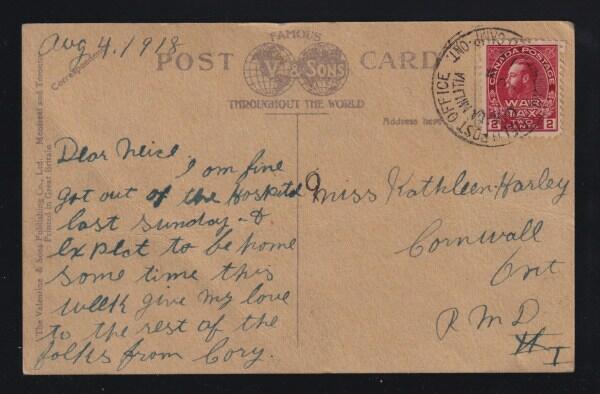 Aug 4. 1918
FAMOUS
POST CARD
V. & SONS
THROUGHOUT THE WORLD
Correspondence
Address here
The Valentine & Sons Publishing Co., Ltd. Montreal and Toronto
Printed in Great Britain.
POST OFFICE
MILITIA
ONT.
CANADA POSTAGE
WAR
TAX
2 CENTS 2
Dear Neice
I am fine
got out of the Hospital
last Sunday &
Expect to be home
some time this
week give my love
to the rest of the
folks from Cory.
Miss Kathleen Harley
Cornwall
Ont
R M D
# I